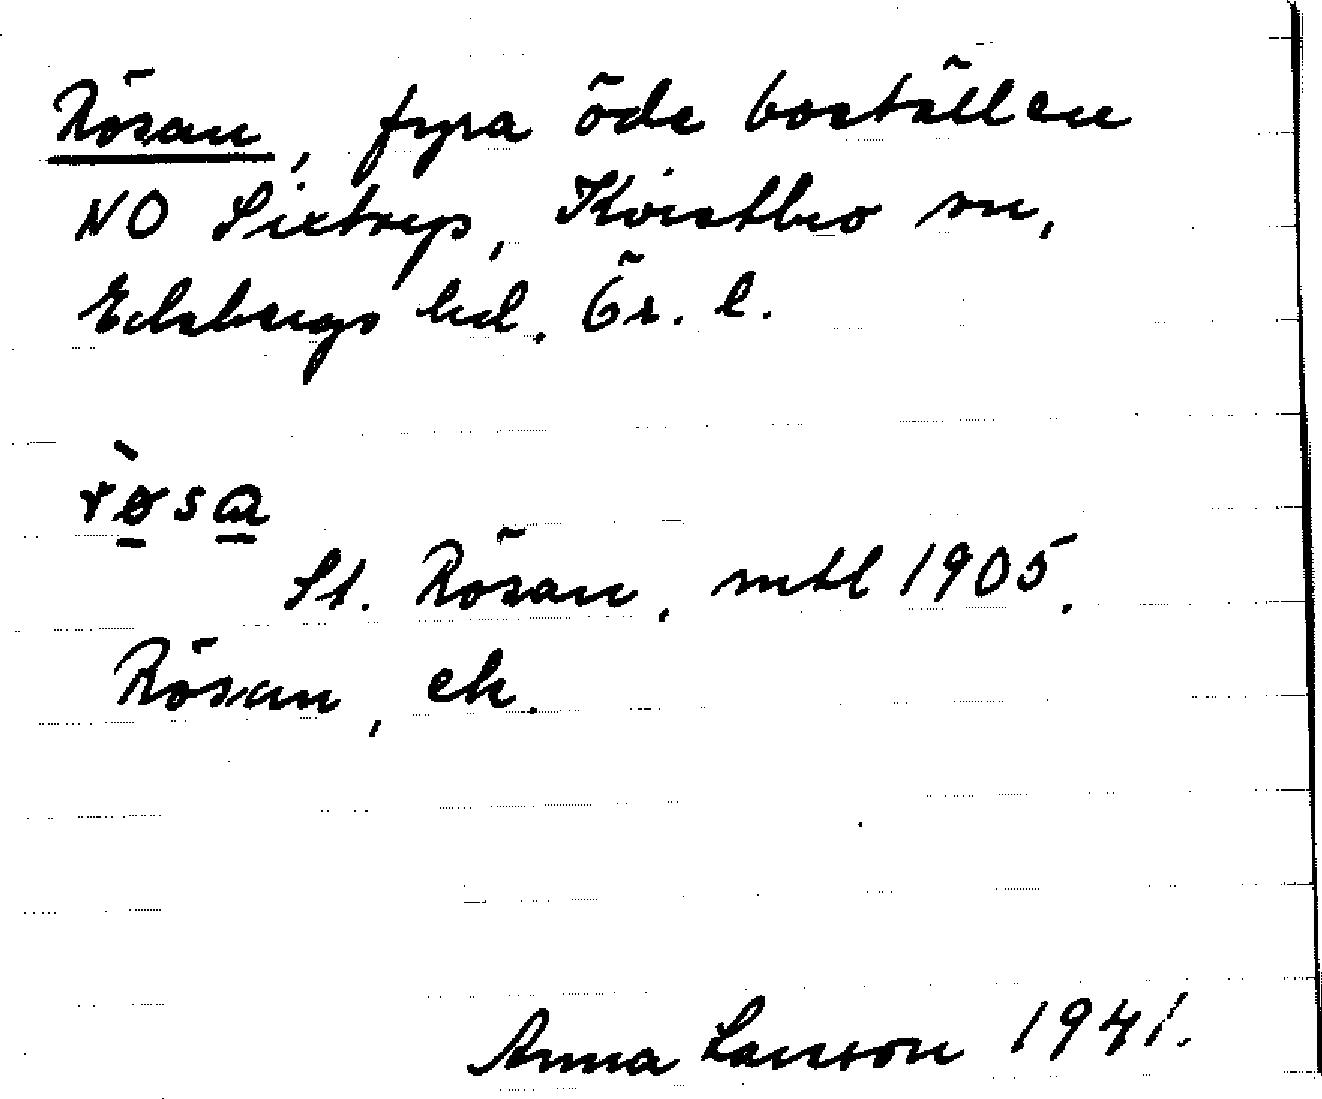 Rösan, fyra öde boställen
NO Sixtrep, Kvistbro sn,
Edsbergs hd. Ör. l.
rösa
St. Rösan, mtl 1905.
Rösan, ek.
Anna Larsson 1941.